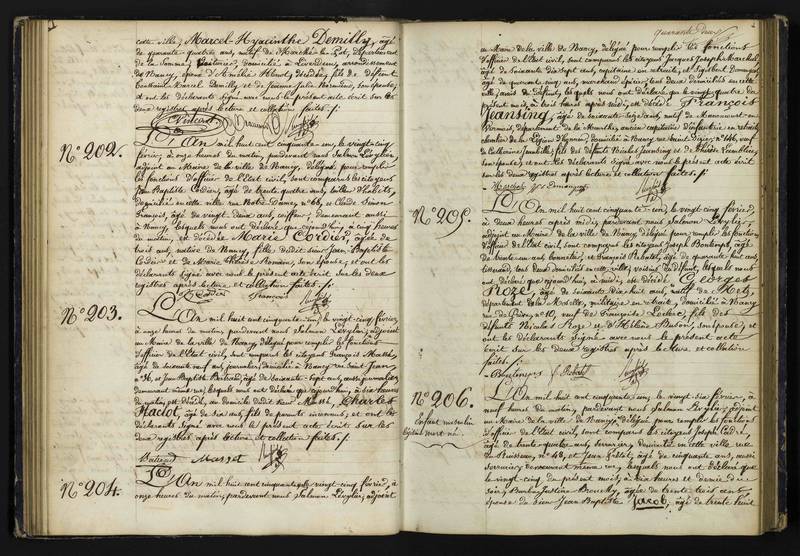 cette ville, Marcel Hyacinthe Demilly, âgé
de quarante-quatre ans, natif de Marché le Pot, département
de la Somme, domicilié à Liverdun, arrondissement
de Nancy, époux d'Amélie décédée, fils de défunt
Demilly et de Jeanne Julie son épouse,
et ont les déclarants signé avec nous le présent acte écrit sur les
deux registres après lecture et collation faites. /.
N.° 202.
L'An mil huit cent cinquante-un, le vingt-cinq
février, à onze heures du matin, pardevant nous Salmon Lévylier,
adjoint au Maire de la ville de Nancy, délégué pour remplir
les fonctions d'officier de l'Etat civil, sont comparus les citoyens
Jean Baptiste Cordier, âgé de trente quatre ans, tailleur d'habits,
domicilié en cette ville rue Notre Dame, n° 68, et Claude Simon
François, âgé de vingt deux ans, coiffeur, demeurant aussi
à Nancy, lesquels nous ont déclaré que cejourd'hui, à cinq heures
du matin, est décédée Marie Cordier, âgée de
trois ans, native de Nancy, fille dudit sieur Jean Baptiste
Cordier et de Marie Thérèse Romain, son épouse; et ont les
déclarants signé avec nous le présent acte écrit sur les deux
registres après lecture et collation faites. /.
Cordier François
N.° 203.
L'An mil huit cent cinquante-un, le vingt-cinq février,
à onze heures du matin, pardevant nous Salmon Lévylier, adjoint
au Maire de la ville de Nancy, délégué pour remplir les fonctions
d'officier de l'Etat civil, sont comparus les citoyens François
âgé de soixante neuf ans, journalier, domicilié à Nancy rue Saint Jean
n° 36, et Jean Baptiste Bertrand, âgé de soixante-sept ans, aussi journalier,
demeurant même rue; lesquels nous ont déclaré que cejourd'hui, à six heures
du matin, est décédé, au domicile dudit sieur Charles
Hactot, âgé de six ans, fils de parents inconnus, et ont les
déclarants signé avec nous le présent acte écrit sur les
deux registres après lecture et collation faites. /.
Bertrand
N.° 204.
L'An mil huit cent cinquante-un, le vingt-cinq février, à
onze heures du matin, pardevant nous Salmon Lévylier, adjoint
quarante deux
au Maire de la ville de Nancy, délégué pour remplir les fonctions
d'officier de l'Etat civil, sont comparus les citoyens Jacques Joseph
âgé de soixante dix sept ans, capitaine en retraite, et
âgé de quarante-cinq ans, tous deux domiciliés en cette
ville, lesquels nous ont déclaré que le vingt quatre du
présent mois, à trois heures après midi, est décédé François
Jeansing, âgé de soixante-seize ans, natif de
département de la Meurthe, ancien capitaine d'infanterie en retraite,
chevalier de la Légion d'honneur, domicilié à Nancy rue Saint n° 46, veuf
de Catherine fils des défunts Nicolas Jeansing et de
son épouse; et ont les déclarants signé avec nous le présent acte écrit
sur les deux registres après lecture et collation faites. /.
N.° 205.
L'An mil huit cent cinquante-un, le vingt-cinq février,
à deux heures après midi, pardevant nous Salmon Lévylier,
adjoint au Maire de la ville de Nancy, délégué pour remplir les fonctions
d'officier de l'Etat civil, sont comparus les citoyens Joseph
de trente-un ans, et François Robatel, âgé de quarante-huit ans,
tous deux domiciliés en cette ville, voisins du défunt, lesquels nous
ont déclaré que cejourd'hui, à midi, est décédé Georges
Roze, âgé de soixante dix huit ans, natif de Metz,
département de la Moselle, militaire en retraite, domicilié à Nancy
rue n° 10, veuf de Françoise Leclerc, fils des
défunts Nicolas Roze et d'Hélène son épouse; et
ont les déclarants signé avec nous le présent acte
écrit sur les deux registres après lecture et collation
faites. /.
N.° 206.
Enfant masculin
mort né.
L'An mil huit cent cinquante-un, le vingt-six février, à
neuf heures du matin, pardevant nous Salmon Lévylier, adjoint
au Maire de la ville de Nancy, délégué pour remplir les fonctions
d'officier de l'Etat civil, sont comparus les citoyens Joseph
âgé de trente-quatre ans, serrurier, domicilié en cette ville rue
du Ruisseau, n° 48, et Jean âgé de cinquante ans, aussi
serrurier, demeurant même rue, lesquels nous ont déclaré que
le vingt-cinq du présent mois, à dix heures et demie du
soir, Barbe Justine âgée de trente trois ans,
épouse du sieur Jean Baptiste Jacob, âgé de trente huit